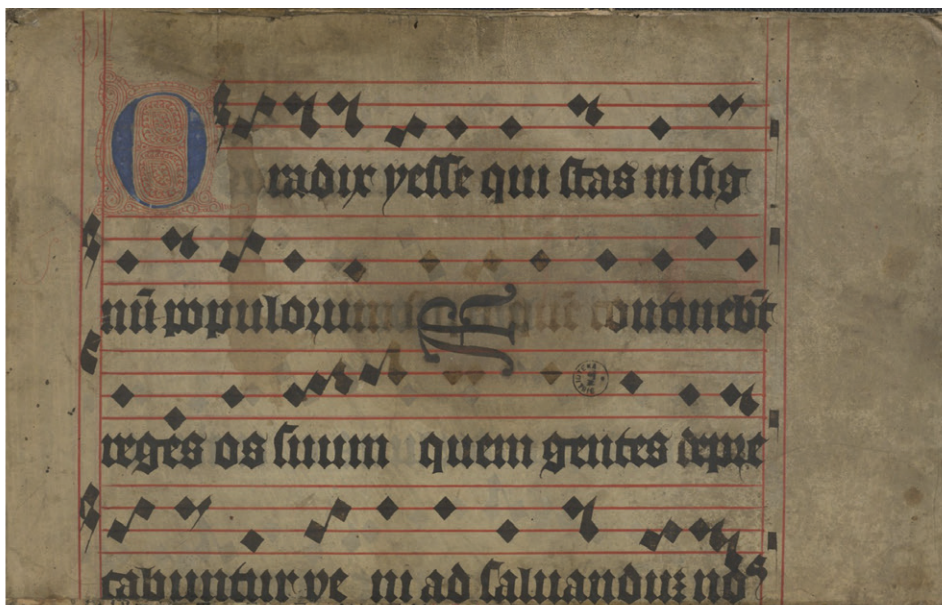 O radix yesse qui stas in sig
nū populorum continebūt
reges os suum quem gentes depre
cabuntur ve ni ad saluanduz nos